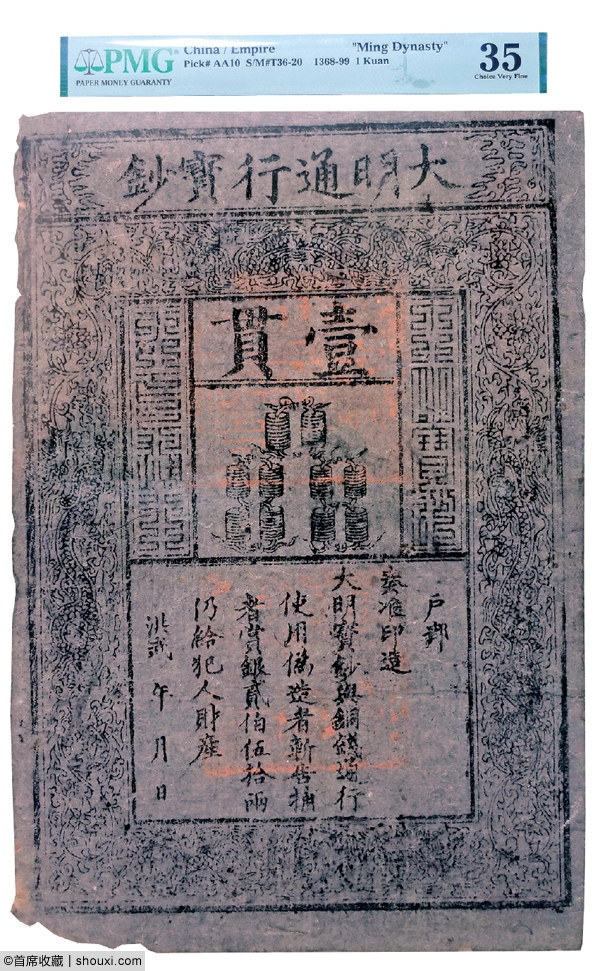 PMG
PAPER MONEY GUARANTY
China / Empire "Ming Dynasty"
Pick# AA10 S/M#T36-20 1368-99 1 Kuan
35
Choice Very Fine
大明通行寶鈔
壹貫
戶部
奏准印造
大明寶鈔與銅錢通行
使用偽造者斬告捕
者賞銀貳佰伍拾兩
仍給犯人財產
洪武 年 月 日
©首席收藏 | shouxi.com